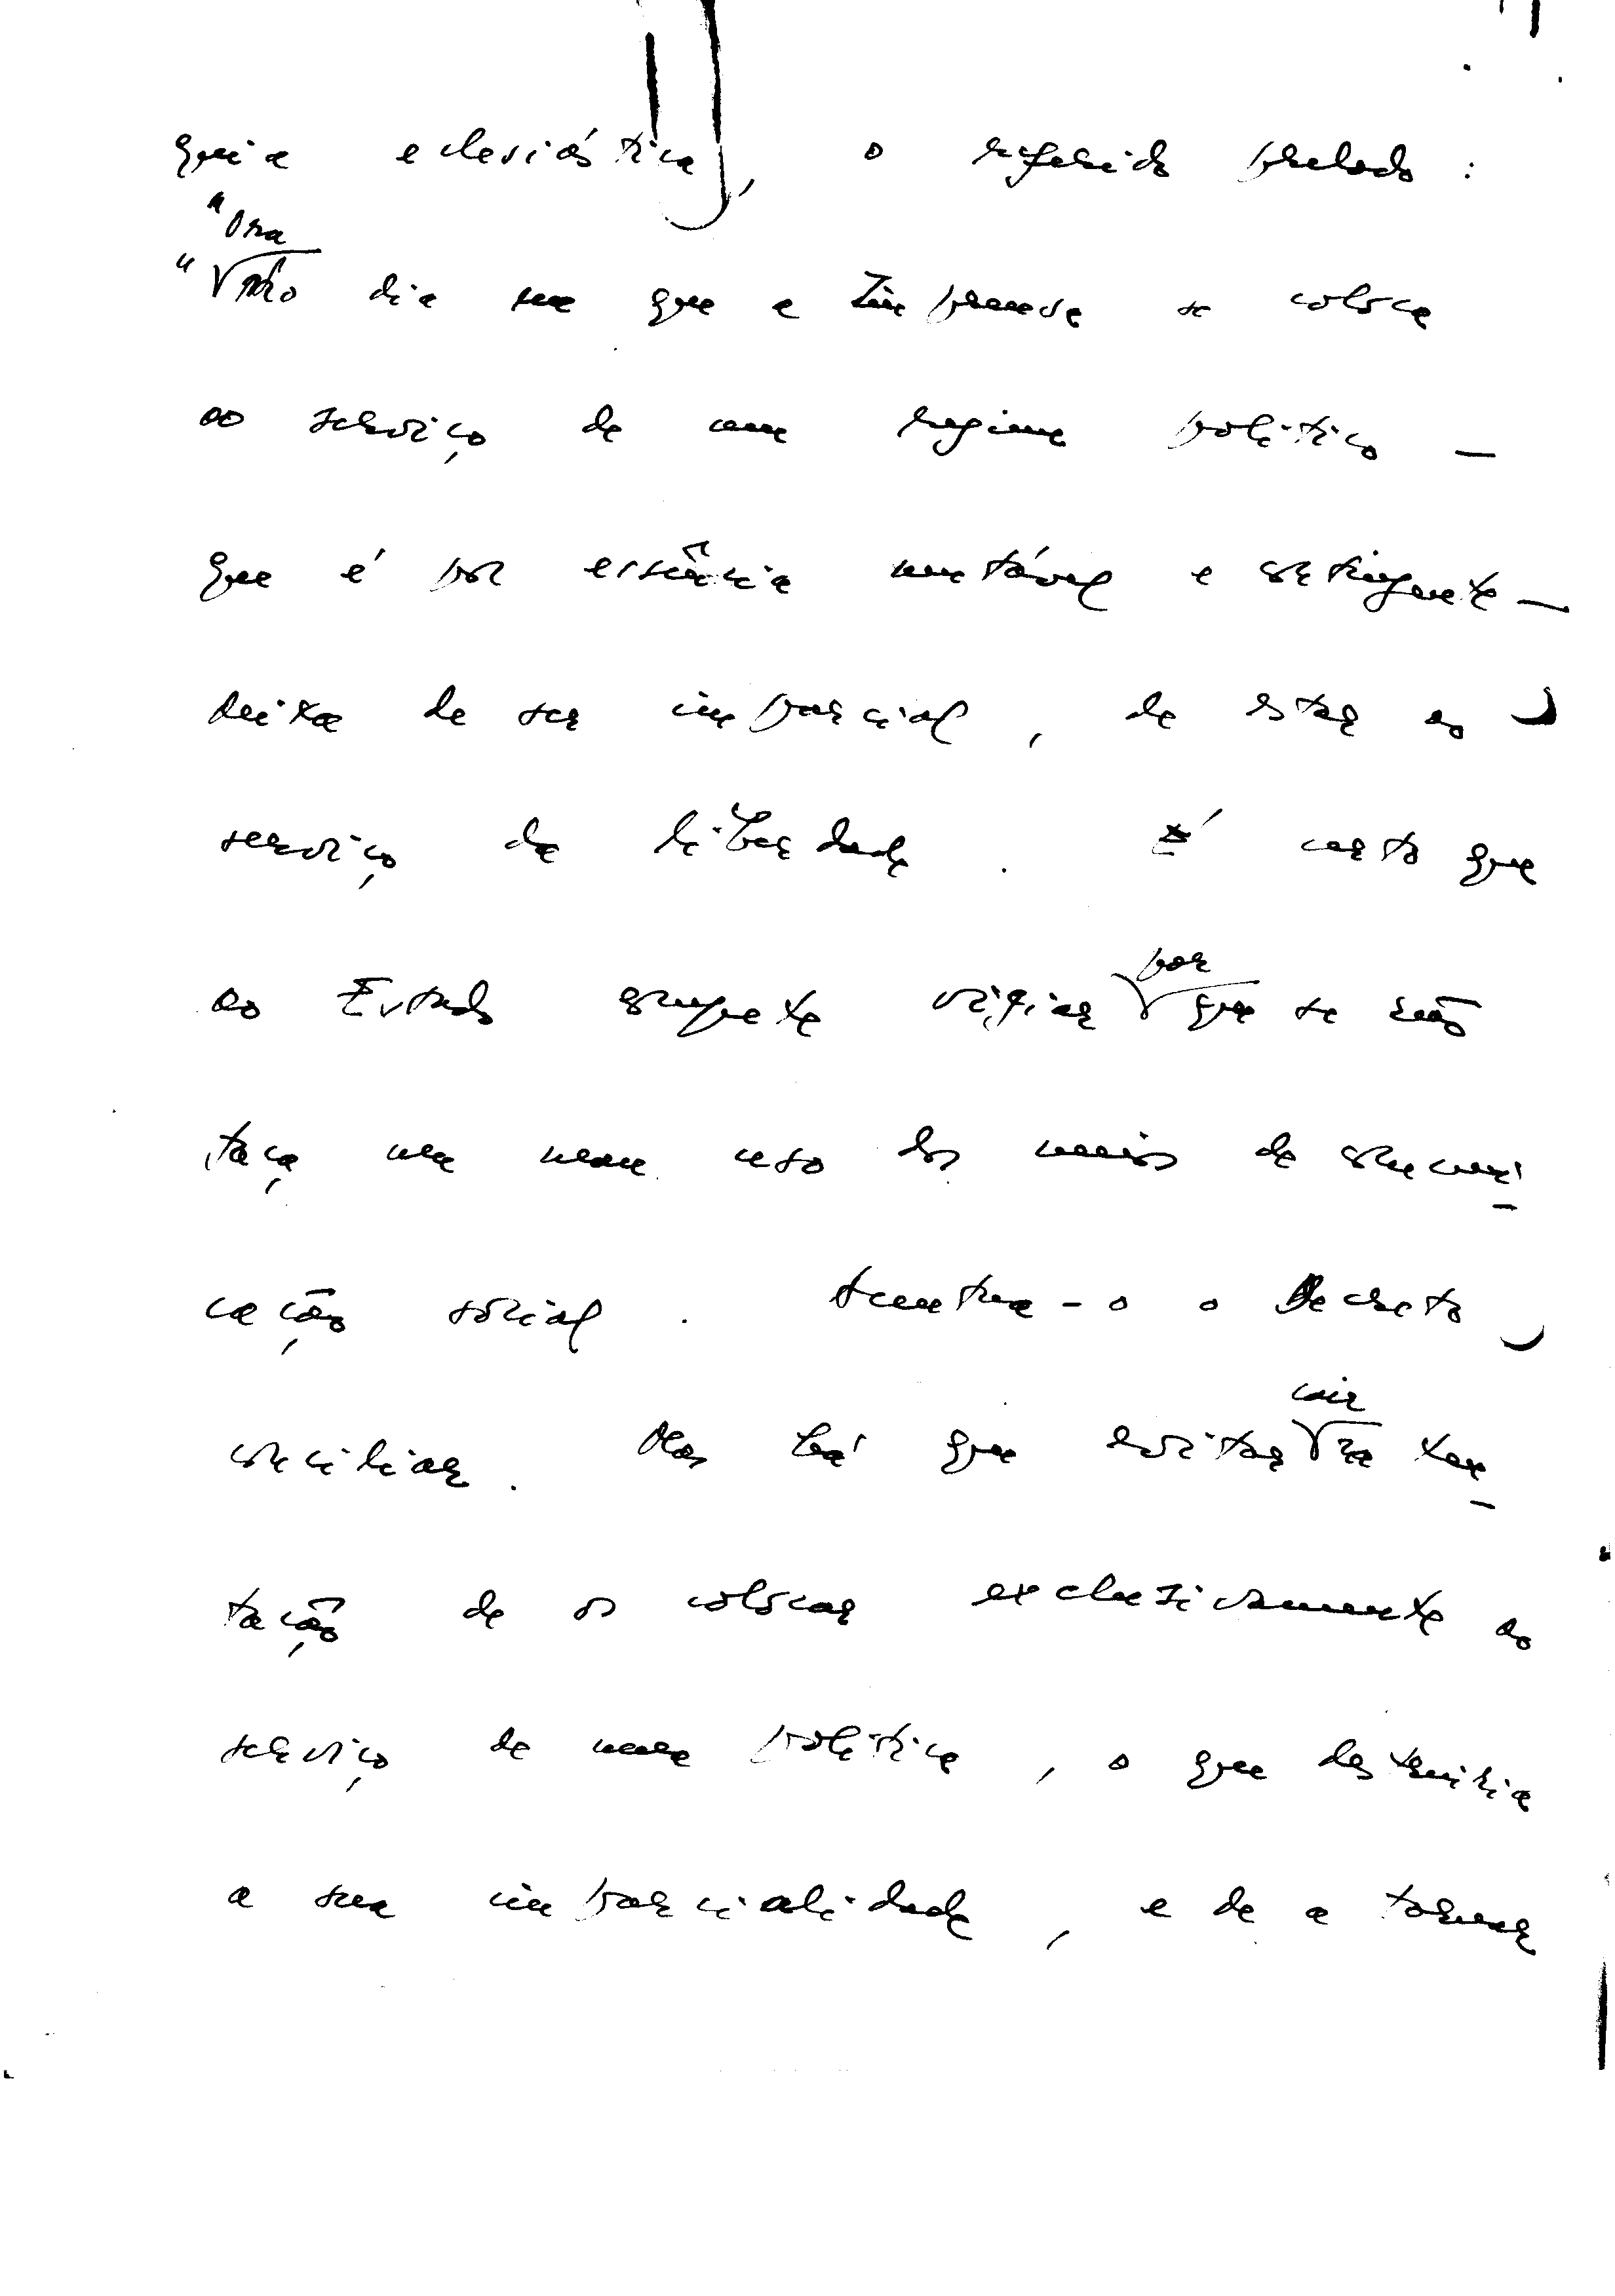 quia eclesiástica, o referido prelado :
"Ora
" no dia em que a Imprensa se coloca
ao serviço de um regime político —
que é por essência mutável e contingente —
deixa de ser imparcial, de estar ao
serviço da liberdade. É certo que
ao Estado compete vigiar
por
que se não
faça um mau uso dos meios de comuni-
cação social. Acentua-o o Decreto
conciliar. Mas há que evitar
cair
na ten-
tação de os colocar exclusivamente ao
serviço de uma política, o que destruiria
a sua imparcialidade, e de a tornar